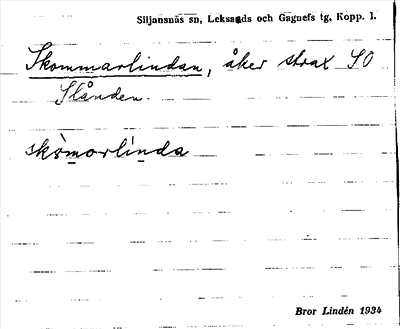 Siljansnäs sn, Leksands och Gagnefs tg, Kopp. l.
Skommarlindan, åker strax SO
Slånden.
skòmorlìnda
Bror Lindén 1934